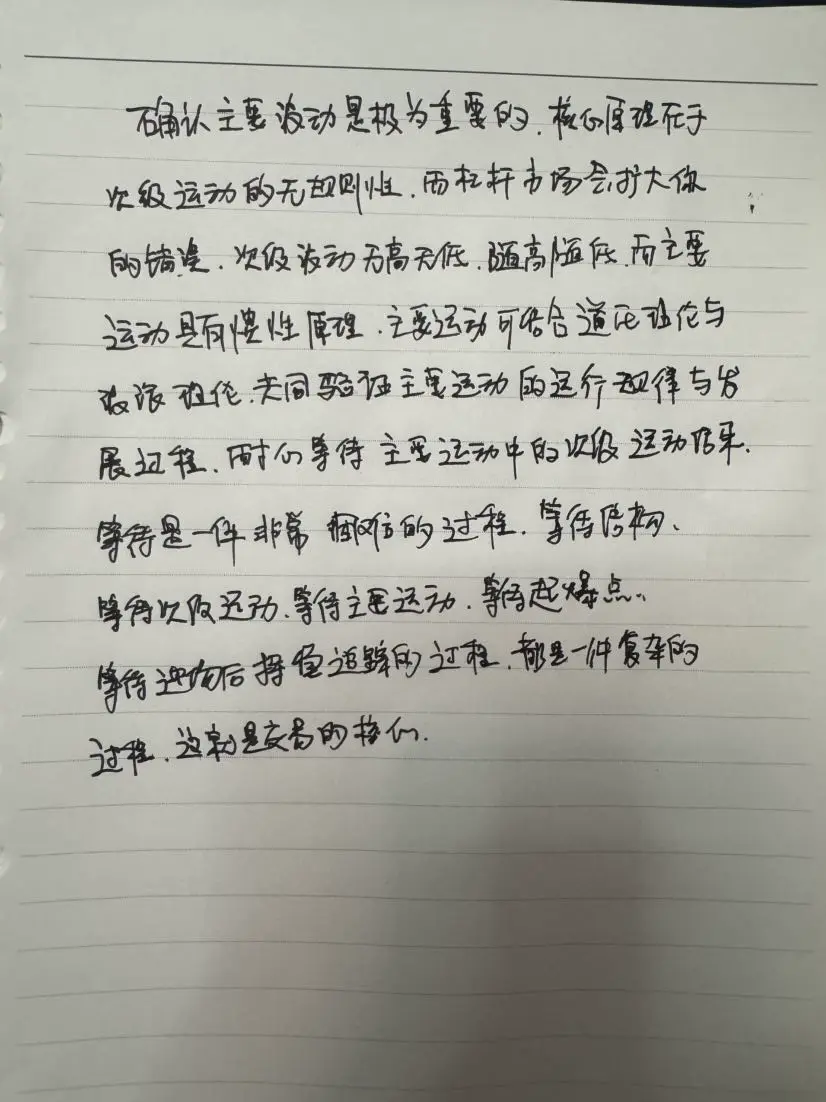 确认主要波动是极为重要的.核心原理在于
次级运动的无规则性.而杠杆市场会扩大你
的错误.次级波动无高无低.随高随低.而主要
运动具有惯性原理.主要运动可结合道氏理论与
波浪理论.共同验证主要运动的运行规律与发
展过程.耐心等待主要运动中的次级运动结束.
等待是一件非常困难的过程.等待结构、
等待次级运动、等待主要运动.等待起爆点..
等待进场后持仓追踪的过程.都是一件复杂的
过程.这就是交易的核心.